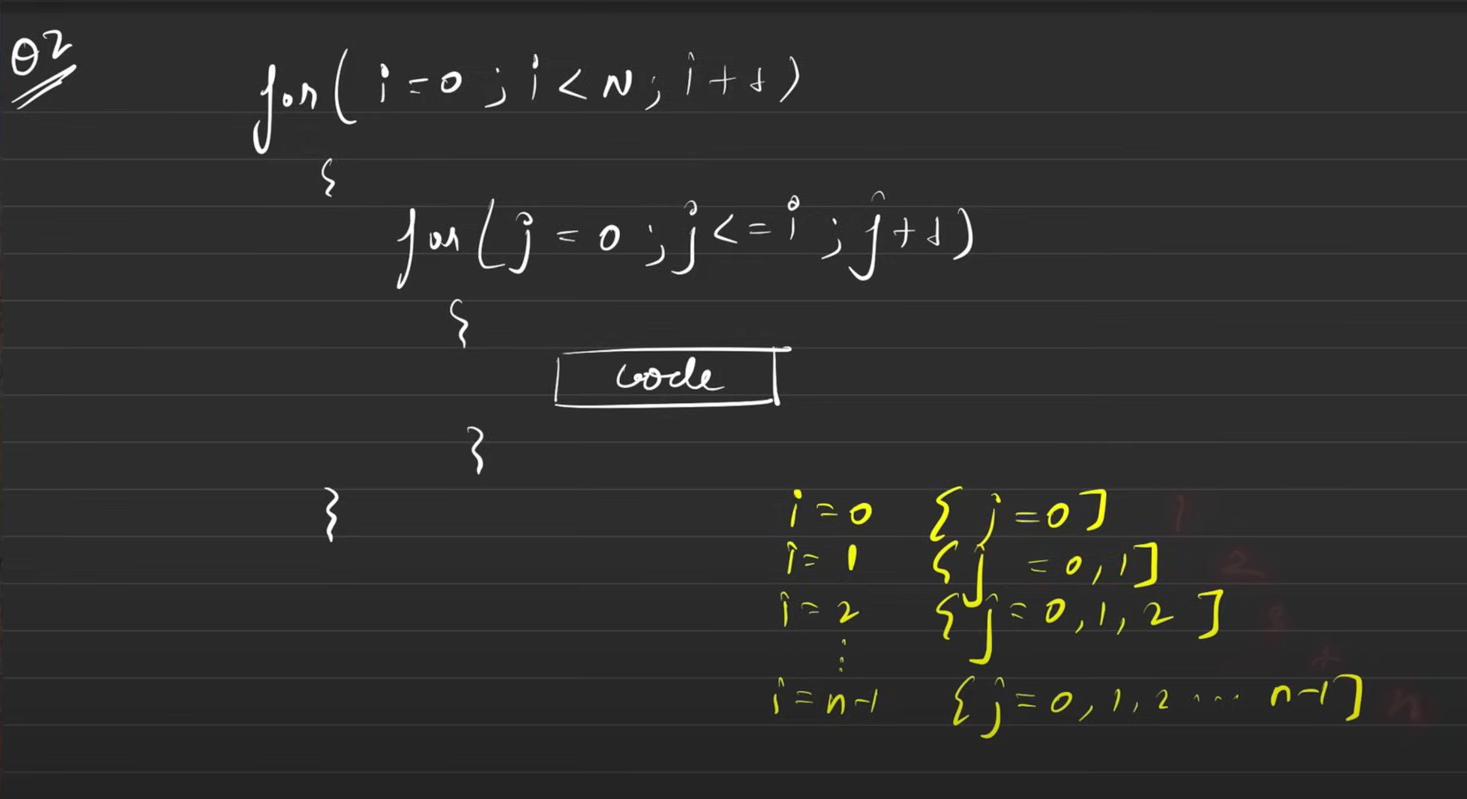 Q2
for( i=0 ; i<N ; i++)
{
for( j=0 ; j<=i ; j++)
{
code
}
}
i=0 { j=0]  1
i=1 { j =0,1]  2
i=2 { j=0,1,2 ]  3
⋮ +
i=n-1 { j=0,1,2 .... n-1]  n